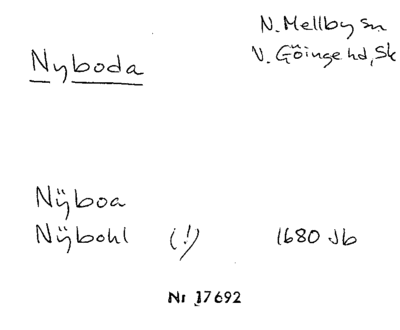 N. Mellby sn
V. Göinge hd, Sk
Nyboda
Nÿboa
Nÿbohl (!) 1680 Jb
Nr 17692